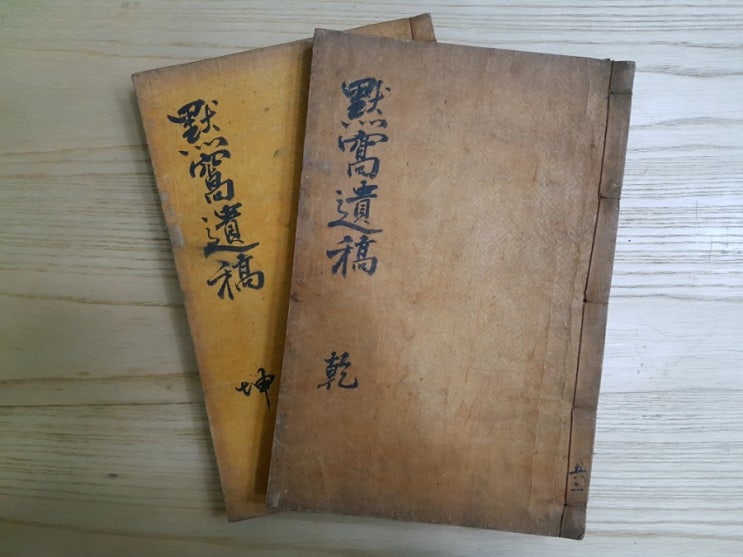 默窩遺稿
乾
共二
默窩遺稿
坤